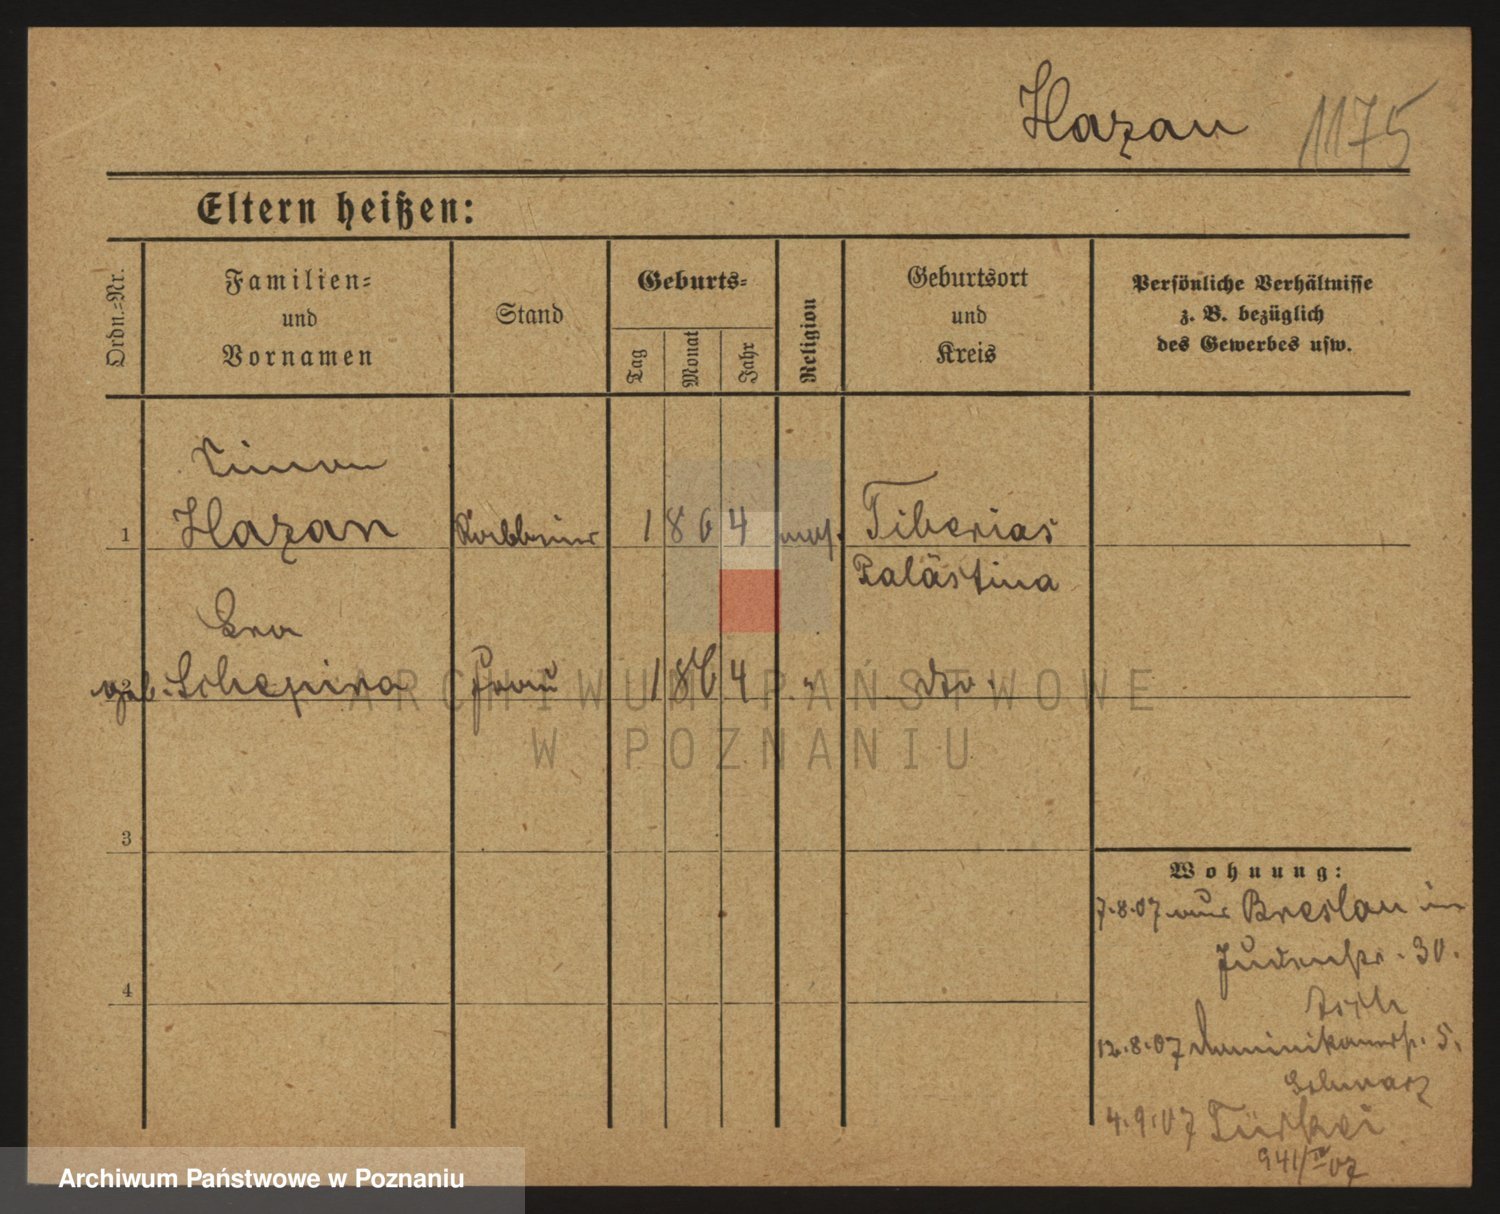 Hazan 1175
Eltern heißen:
Ordn.-Nr.
Familien-
und
Vornamen
Stand
Geburts-
Tag
Monat
Jahr
Religion
Geburtsort
und
Kreis
Persönliche Verhältnisse
z. B. bezüglich
des Gewerbes usw.
Simon
1 Hazan Rabbiner 1864 mos. Tiberias
Palästina
Eva
2 geb. Schapira Frau 1864 " dto.
ARCHIWUM PAŃSTWOWE
W POZNANIU
3
4
Wohnung:
7.8.07 aus Breslau in
Judenstr. 30.
12.8.07 Dominikanerstr. 5.
Schwarz
4.9.07 Türkei
941/IV 07
Archiwum Państwowe w Poznaniu